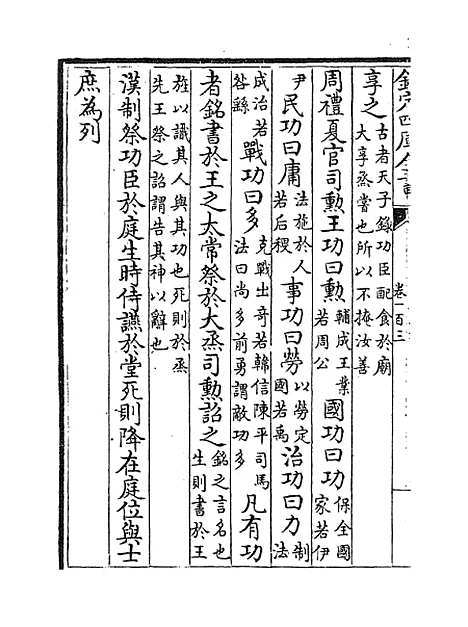 欽定四庫全書
卷一百三
享之古者天子錄功臣配食於廟大享烝嘗也所以不掩汝善
周禮夏官司勳王功曰勳輔成王業若周公國功曰功保全國家若伊
尹民功曰庸法施於人若后稷事功曰勞以勞定國若禹治功曰力制法
成治若咎繇戰功曰多克戰出奇若韓信陳平司馬法曰尚多前勇謂敵功多凡有功
者銘書於王之太常祭於大烝司勳詔之銘之言名也生則書於王
旌以識其人與其功也死則於烝先王祭之詔謂告其神以辭也
漢制祭功臣於庭生時侍讌於堂死則降在庭位與士
庶為列